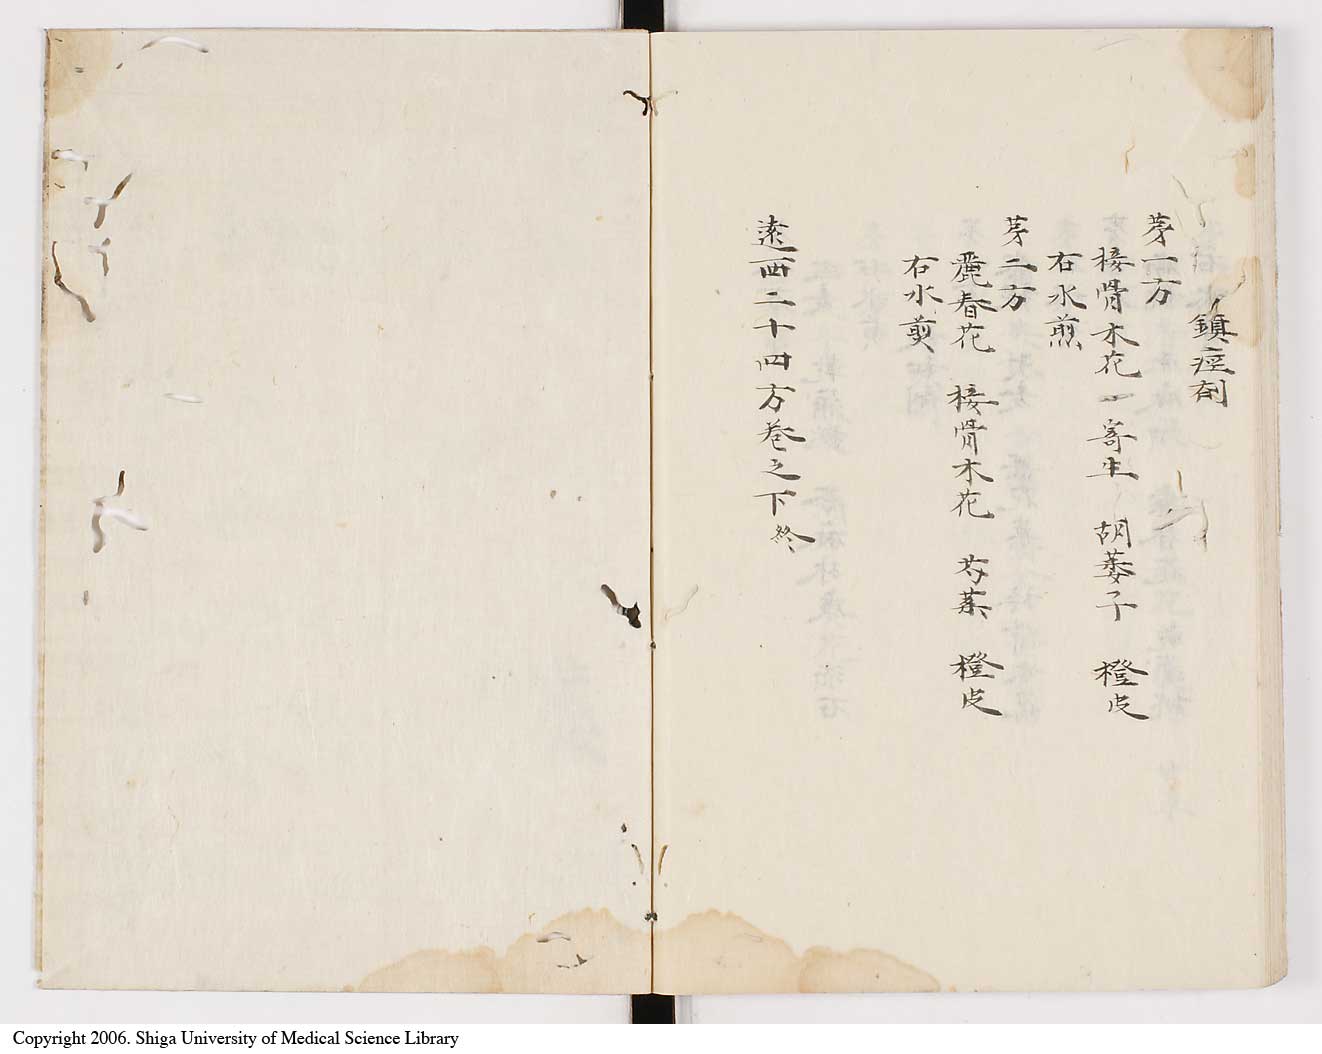 鎮痙剤
第一方
接骨木花 一 寄生 胡荽子 橙皮
右水煎
第二方
麗春花 接骨木花 芍薬 橙皮
右水煎
遠西二十四方巻之下 終
Copyright 2006. Shiga University of Medical Science Library